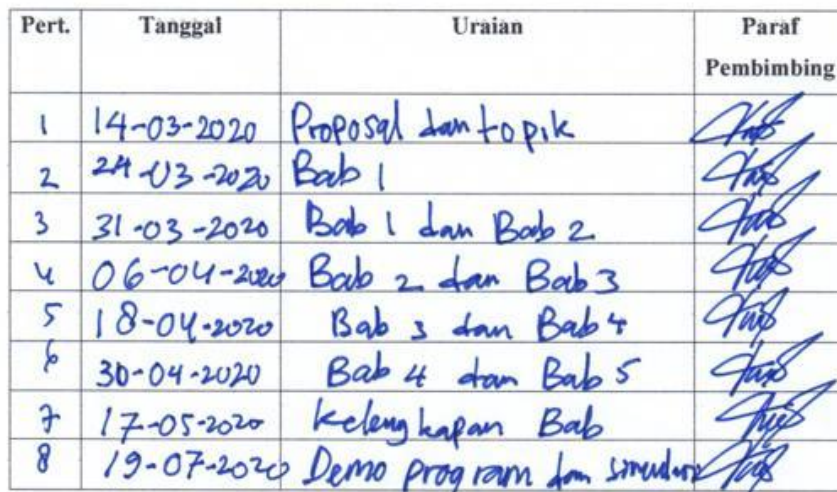 Pert. Tanggal Uraian Paraf
Pembimbing
1 14-03-2020 Proposal dan topik
2 24-03-2020 Bab 1
3 31-03-2020 Bab 1 dan Bab 2
4 06-04-2020 Bab 2 dan Bab 3
5 18-04-2020 Bab 3 dan Bab 4
6 30-04-2020 Bab 4 dan Bab 5
7 17-05-2020 Kelengkapan Bab
8 19-07-2020 Demo program dan